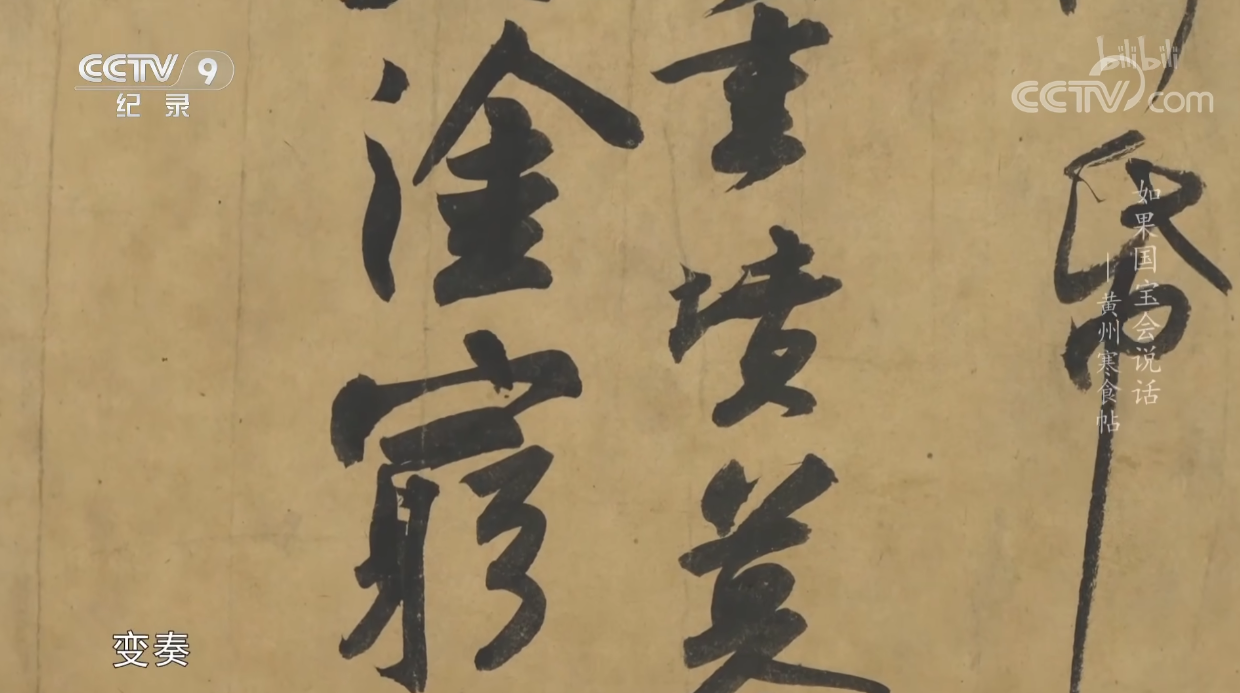 CCTV 9
纪录
bilibili
CCTV.com
如果国宝会说话
—黄州寒食帖
帋
重墳墓
塗窮
变奏